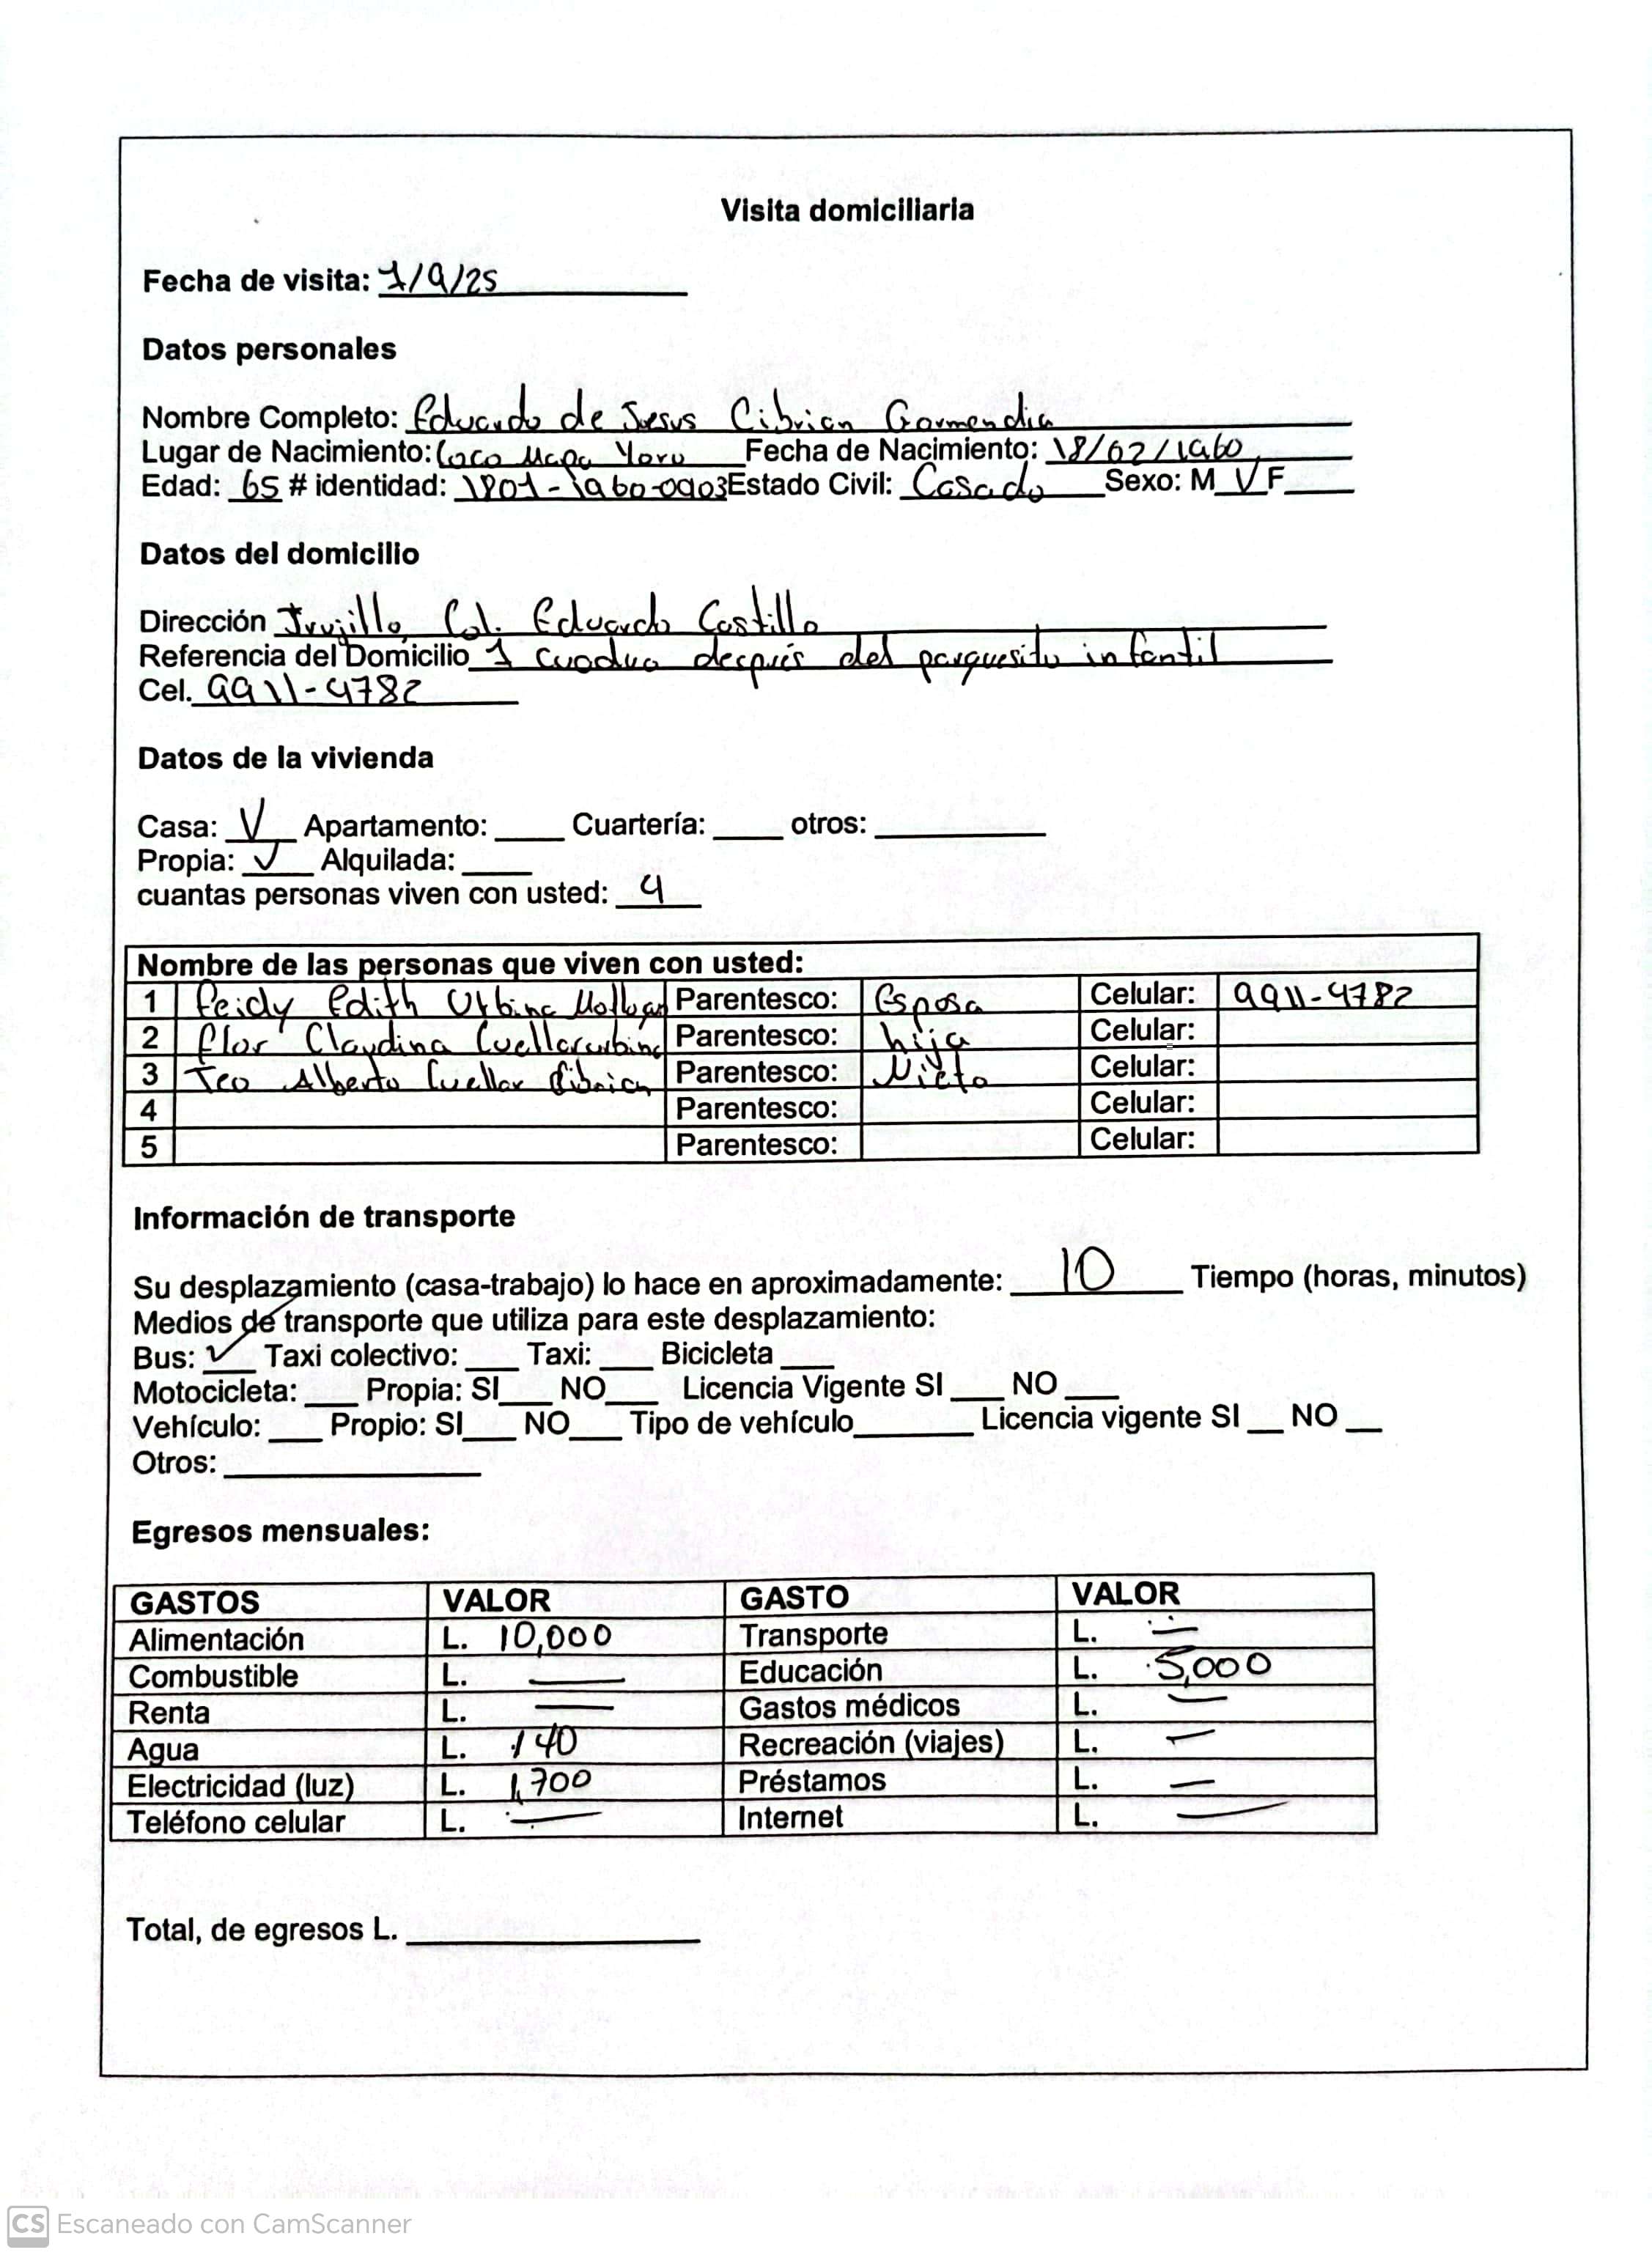 Visita domiciliaria
Fecha de visita: 1/9/25
Datos personales
Nombre Completo: Eduardo de Jesus Cibrian Garmendia
Lugar de Nacimiento: Coco Mapa Yoro Fecha de Nacimiento: 18/02/1960
Edad: 65 # identidad: 1801-1960-0903 Estado Civil: Casado Sexo: M V F
Datos del domicilio
Dirección Trujillo, Col. Eduardo Castillo
Referencia del Domicilio 1 cuadra después del parquesito infantil
Cel. 9911-4782
Datos de la vivienda
Casa: V Apartamento: ____ Cuartería: ____ otros: ____
Propia: V Alquilada: ____
cuantas personas viven con usted: 4
Nombre de las personas que viven con usted:
1 Edith Urbina Parentesco: Esposa Celular: 9911-4782
2 Flor Claudina Cuellar urbina Parentesco: hija Celular:
3 Teo Alberto Cuellar Cibrian Parentesco: Nieto Celular:
4 Parentesco: Celular:
5 Parentesco: Celular:
Información de transporte
Su desplazamiento (casa-trabajo) lo hace en aproximadamente: 10 Tiempo (horas, minutos)
Medios de transporte que utiliza para este desplazamiento:
Bus: ✓ Taxi colectivo: ___ Taxi: ___ Bicicleta ___
Motocicleta: ___ Propia: SI ___ NO ___ Licencia Vigente SI ___ NO ___
Vehículo: ___ Propio: SI ___ NO ___ Tipo de vehículo ___ Licencia vigente SI __ NO __
Otros: ____
Egresos mensuales:
GASTOS VALOR GASTO VALOR
Alimentación L. 10,000 Transporte L. —
Combustible L. — Educación L. 5,000
Renta L. — Gastos médicos L. —
Agua L. 140 Recreación (viajes) L. —
Electricidad (luz) L. 1,700 Préstamos L. —
Teléfono celular L. — Internet L. —
Total, de egresos L. ____
CS Escaneado con CamScanner